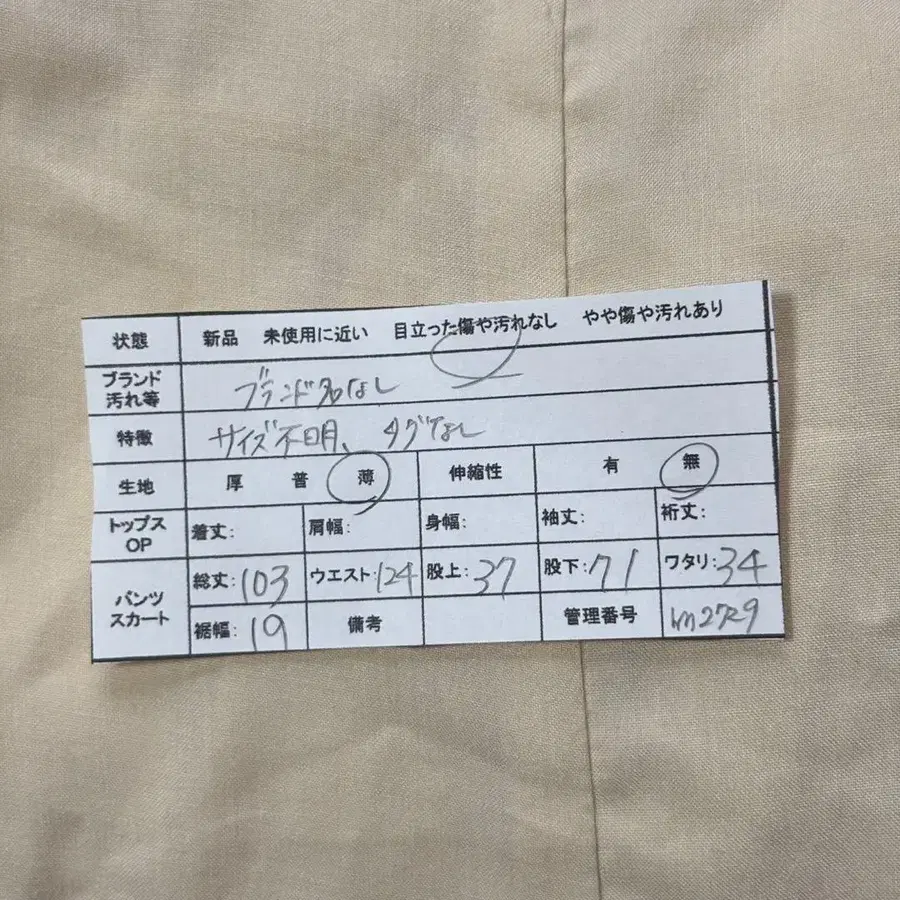 状態 新品 未使用に近い 目立った傷や汚れなし やや傷や汚れあり
ブランド
汚れ等 ブランド名なし
特徴 サイズ不明、タグなし
生地 厚 普 薄 伸縮性 有 無
トップス
OP 着丈: 肩幅: 身幅: 袖丈: 裄丈:
パンツ
スカート 総丈:103 ウエスト:124 股上:37 股下:71 ワタリ:34
裾幅:19 備考 管理番号